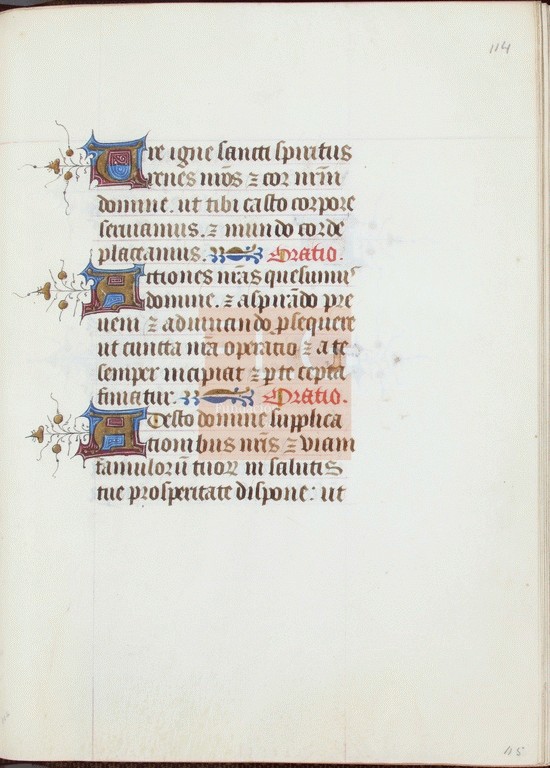 114
Ure igne sancti spiritus
renes nr̄os ⁊ cor nr̄m
domine. ut tibi casto corpore
seruiamus. ⁊ mundo corde
placeamus. Oratio.
Actiones nr̄as quesumus
domine. ⁊ aspirādo pre
ueni ⁊ adiuuando ꝓsequere
ut cuncta nr̄a operatio ⁊ a te
semper incipiat ⁊ ꝑ te cepta
finiatur. Oratio.
Adesto domine supplica
tionibus nr̄is ⁊ viam
famulorū tuoꝝ in salutis
tue prosperitate dispone: ut